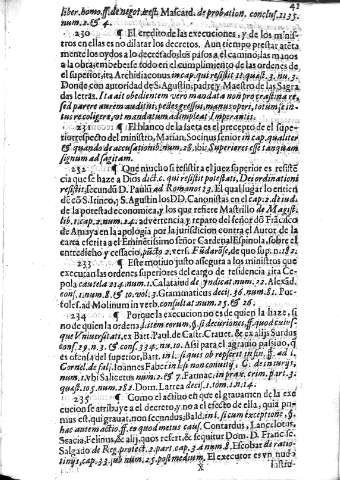 42
liber.homo.ff.de negot.gest. Mascard. de probation. conclus. 1135.
num. 2. & 4.
230 ¶ El credito de las execuciones, y de los minis-
tros en ellas es no dilatar los decretos. Aun tiempo prestar atēta
mente los oydos a lo decretado, los pasos a el camino, las manos
a la obra se mbebese todo en el cumplimiento de las ordenes de
el superior, ita Archidiaconus in cap. qui resistit 11. quæst. 3. nu. 3.
Donde con autoridad de S. Agustin, padre, y Maestro de las Sagra
das letras. Ita ait obedientem vero mandata non procrastinare,
sed parere aurem auditui, pedes gressui, manus operi, totum se in-
tus recoligere, vt mandatum adimpleat Imperantis.
231 ¶ El blanco de la saeta es el precepto de el supe-
rior respecto del ministro, Marian. Socinus senior in cap. qualiter
& quando de accusationib. num. 28. ibi: Superiores esse tanquam
signum ad sagitam.
232 ¶ Què mucho si resistir a el juez superior es resistē
cia que se haze a Dios dict. c. qui resistit potestate, Dei ordinationi
resistit, secundū D. Paulū ad Romanos 13. El qual lugar lo entien
dē cō S. Irineo, y S. Agustin los DD. Canonistas en el cap. 2. de iud.
de la potestad economica, y los que refiere Mastrillo de Magist.
lib. 1. cap. 2. num. 14. advertencia, y reparo del señor dō Francisco
de Amaya en la apologia por la jurisdicion contra el Autor de la
carta escrita a el Eminētissimo señor Cardenal Espinola, sobre el
entredicho y cessatio, pūcto 2. vers. Fūdarose, de quo sup. n. 182.
233 ¶ Este motiuo justo assegura a los ministros que
executan las ordenes superiores del cargo de residencia, ita Ce-
pola cautela 214. num. 1. Calataiud de syndicat. num. 22. Alexād.
cons. 1. num. 8. & 10. vol. 3. Grammaticus decis. 36. num. 81. Puc-
teus, ad Molinum in verb. consultat. num. 25. & 26.
234 ¶ Porque la execucion no es de quien la haze, si
no de quien la ordena, l. item eorum, §. si decuriones, ff. quod cuius-
que Vniuersitati, ex Bart. Paul. de Castr. Crauet. & ex alijs Surdus
cons. 29. n. 3. & cons. 334. nu. 10. Assi para el agrauio passiuo, q̄
es ofensa del superior, Bart. in l. si quis ob repserit in fin. §. ad l.
Cornel. de fals. Ioannes Faber in l. si non conuitij, C. de iniurijs,
num. 1. vbi Salicetus num. 2. & 7. Farinac. in prax. crim. part. 3.
quæst. 105. num. 181. Dom. Larrea decis. 1. tom. 1. n. 14.
235 ¶ Como el actiuo est que el grauamen de la exe
cucion se atribuye a el decreto, y no a el efecto de ella, quia pu-
mus est, qui grauat, non secundus, Bald. in l. si cum exceptione, §.
hac autem actio. ff. eo quod metus caus. Contardus, Lancelotus,
Scacia, Felinus, & alij, quos refert, & sequitur Dom. D. Franc. se
Salgado de Reg. protect. 2. part. cap. 3. num. 8. Escobar de ratio-
tinijs, cap. 33. sub num. 25. post medium. El executor es vn nudo
X instru-